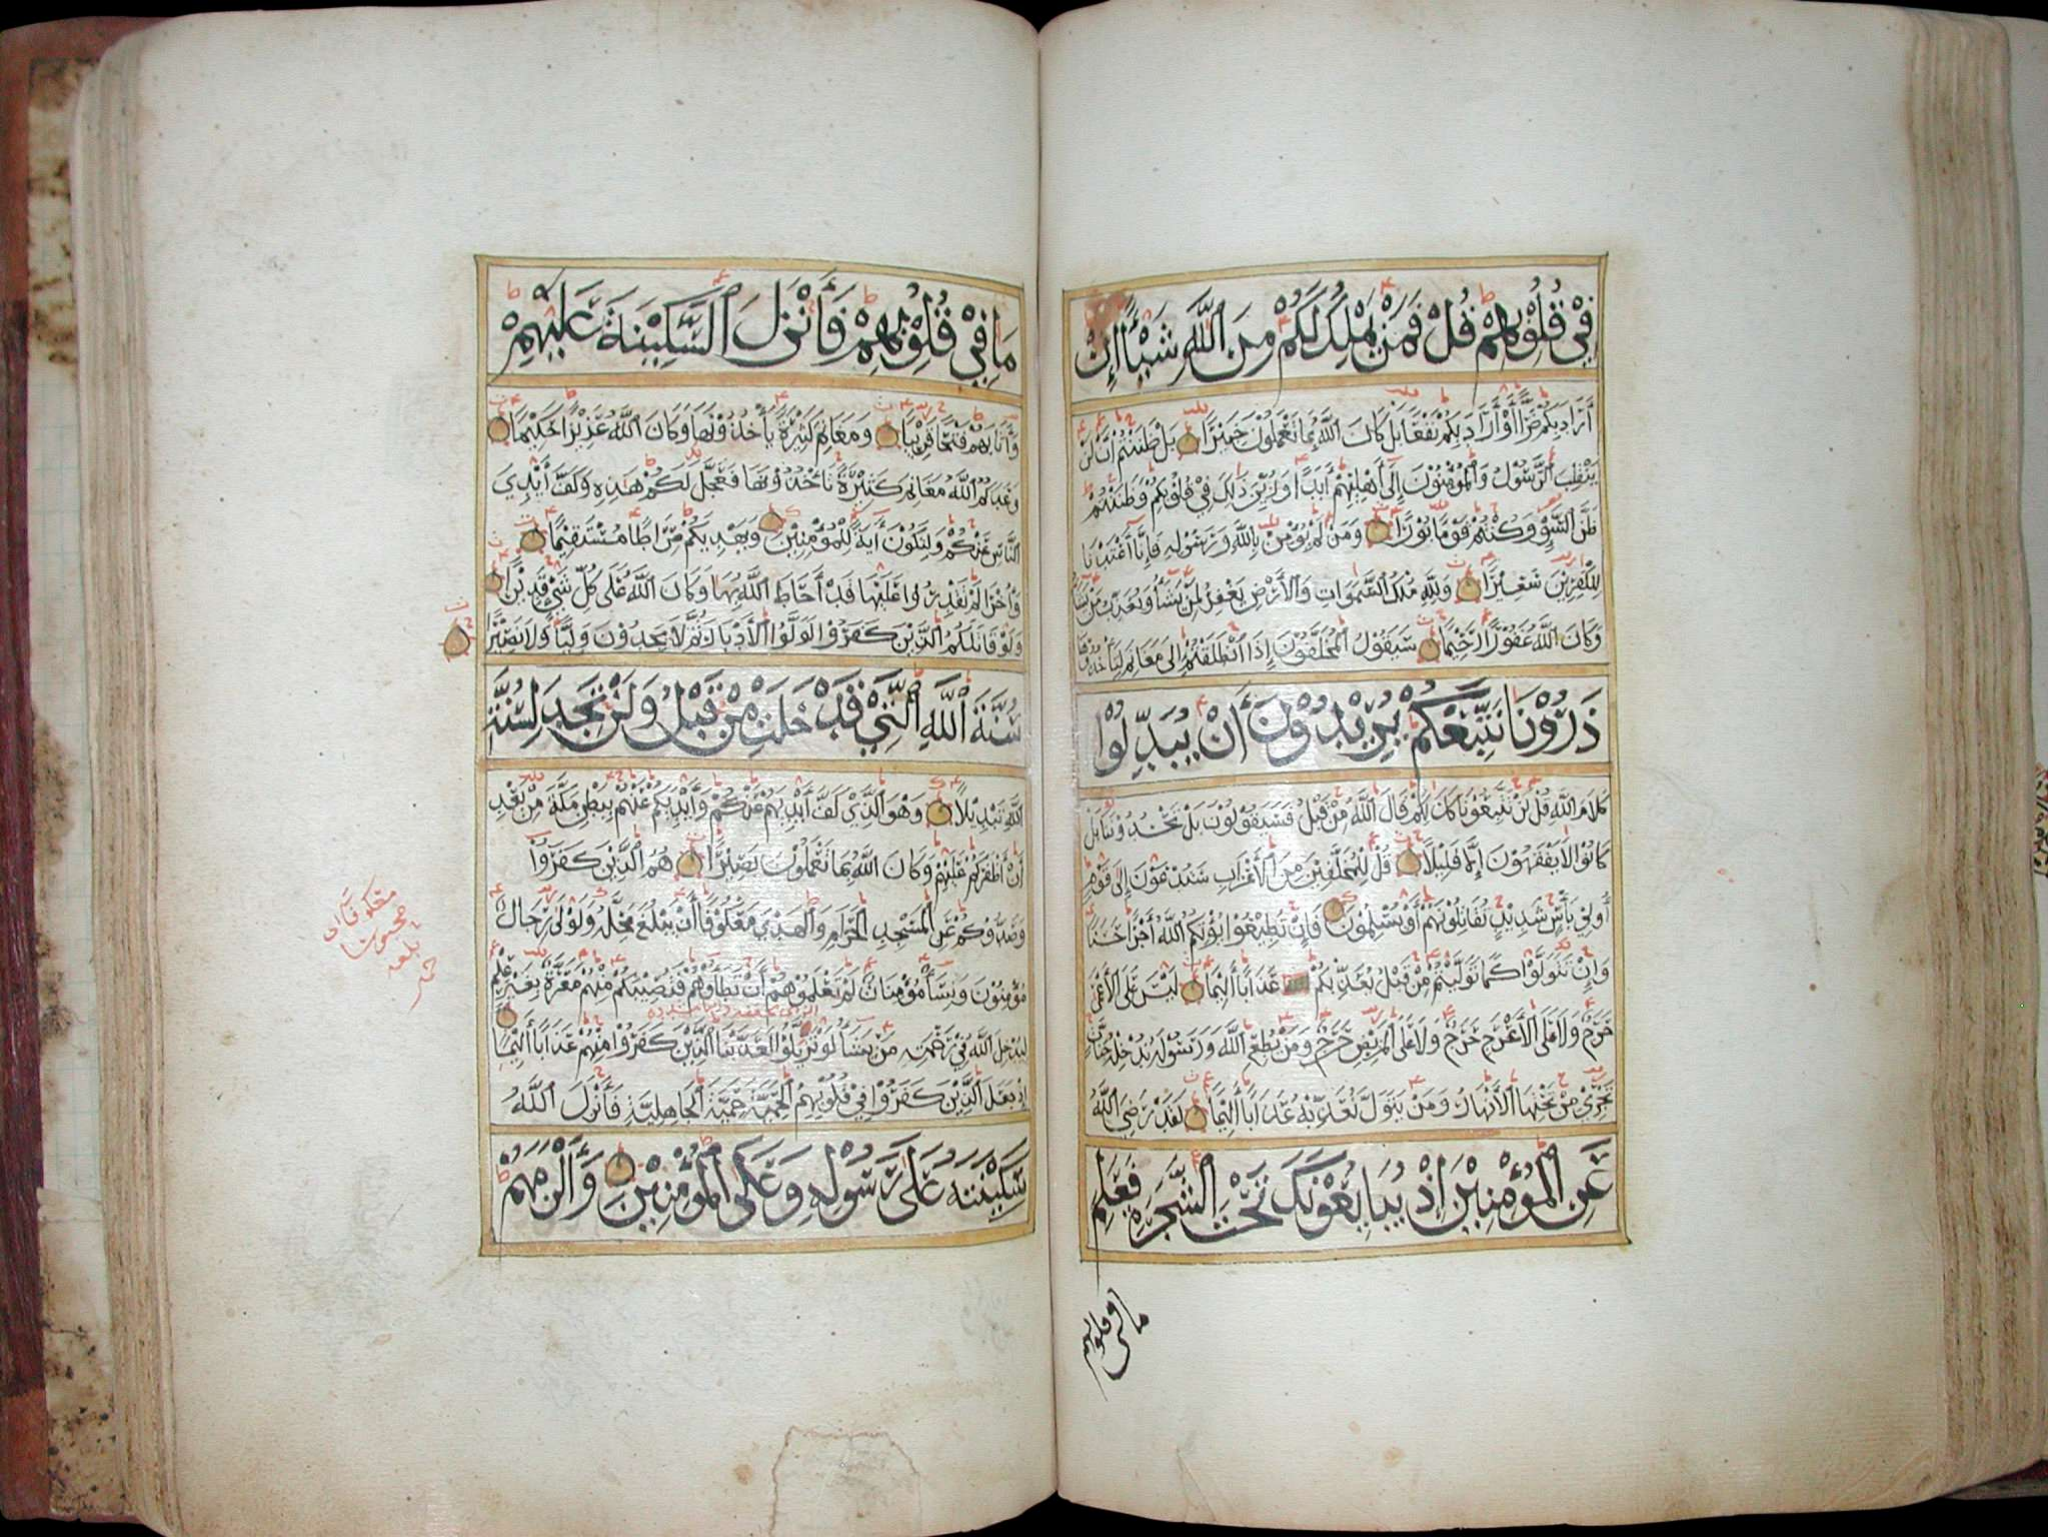 فِيْ قُلُوْبِهِمْ قُلْ فَمَنْ يَمْلِكُ لَكُمْ مِنَ اللّٰهِ شَيْـًٔا اِنْ
أَرَادَ بِكُمْ ضَرًّا أَوْ أَرَادَ بِكُمْ نَفْعًا بَلْ كَانَ اللّٰهُ بِمَا تَعْمَلُونَ خَبِيْرًا بَلْ ظَنَنْتُمْ اَنْ لَنْ
يَنْقَلِبَ الرَّسُوْلُ وَالْمُؤْمِنُوْنَ إِلَى أَهْلِيْهِمْ أَبَدًا وَزُيِّنَ ذٰلِكَ فِيْ قُلُوْبِكُمْ وَظَنَنْتُمْ
ظَنَّ السَّوْءِ وَكُنْتُمْ قَوْمًا بُوْرًا وَمَنْ لَمْ يُؤْمِنْ بِاللّٰهِ وَرَسُوْلِهِ فَإِنَّا أَعْتَدْنَا
لِلْكٰفِرِيْنَ سَعِيْرًا وَلِلّٰهِ مُلْكُ السَّمٰوَاتِ وَالْأَرْضِ يَغْفِرُ لِمَنْ يَشَآءُ وَيُعَذِّبُ مَنْ يَشَآءُ
وَكَانَ اللّٰهُ غَفُوْرًا رَّحِيْمًا سَيَقُوْلُ الْمُخَلَّفُوْنَ إِذَا انْطَلَقْتُمْ إِلَى مَغَانِمَ لِتَأْخُذُوْهَا
ذَرُوْنَا نَتَّبِعْكُمْ يُرِيْدُوْنَ أَنْ يُبَدِّلُوْا
كَلَامَ اللّٰهِ قُلْ لَنْ تَتَّبِعُوْنَا كَذٰلِكُمْ قَالَ اللّٰهُ مِنْ قَبْلُ فَسَيَقُوْلُوْنَ بَلْ تَحْسُدُوْنَنَا بَلْ
كَانُوْا لَا يَفْقَهُوْنَ إِلَّا قَلِيْلًا قُلْ لِلْمُخَلَّفِيْنَ مِنَ الْأَعْرَابِ سَتُدْعَوْنَ إِلَى قَوْمٍ
أُولِيْ بَأْسٍ شَدِيْدٍ تُقَاتِلُوْنَهُمْ أَوْ يُسْلِمُوْنَ فَإِنْ تُطِيْعُوْا يُؤْتِكُمُ اللّٰهُ أَجْرًا حَسَنًا
وَإِنْ تَتَوَلَّوْا كَمَا تَوَلَّيْتُمْ مِنْ قَبْلُ يُعَذِّبْكُمْ عَذَابًا أَلِيْمًا لَيْسَ عَلَى الْأَعْمٰى
حَرَجٌ وَلَا عَلَى الْأَعْرَجِ حَرَجٌ وَلَا عَلَى الْمَرِيْضِ حَرَجٌ وَمَنْ يُطِعِ اللّٰهَ وَرَسُوْلَهُ يُدْخِلْهُ جَنَّاتٍ
تَجْرِيْ مِنْ تَحْتِهَا الْأَنْهَارُ وَمَنْ يَتَوَلَّ يُعَذِّبْهُ عَذَابًا أَلِيْمًا لَقَدْ رَضِيَ اللّٰهُ
عَنِ الْمُؤْمِنِيْنَ إِذْ يُبَايِعُوْنَكَ تَحْتَ الشَّجَرَةِ فَعَلِمَ
ما في قلوبهم
مَا فِيْ قُلُوْبِهِمْ فَأَنْزَلَ السَّكِيْنَةَ عَلَيْهِمْ
وَأَثَابَهُمْ فَتْحًا قَرِيْبًا وَمَغَانِمَ كَثِيْرَةً يَأْخُذُوْنَهَا وَكَانَ اللّٰهُ عَزِيْزًا حَكِيْمًا
وَعَدَكُمُ اللّٰهُ مَغَانِمَ كَثِيْرَةً تَأْخُذُوْنَهَا فَعَجَّلَ لَكُمْ هٰذِهِ وَكَفَّ أَيْدِيَ
النَّاسِ عَنْكُمْ وَلِتَكُوْنَ أٰيَةً لِلْمُؤْمِنِيْنَ وَيَهْدِيَكُمْ صِرَاطًا مُسْتَقِيْمًا
وَأُخْرٰى لَمْ تَقْدِرُوْا عَلَيْهَا قَدْ أَحَاطَ اللّٰهُ بِهَا وَكَانَ اللّٰهُ عَلَى كُلِّ شَيْءٍ قَدِيْرًا
وَلَوْ قَاتَلَكُمُ الَّذِيْنَ كَفَرُوْا لَوَلَّوُا الْأَدْبَارَ ثُمَّ لَا يَجِدُوْنَ وَلِيًّا وَلَا نَصِيْرًا
سُنَّةَ اللّٰهِ الَّتِيْ قَدْ خَلَتْ مِنْ قَبْلُ وَلَنْ تَجِدَ لِسُنَّةِ
اللّٰهِ تَبْدِيْلًا وَهُوَ الَّذِيْ كَفَّ أَيْدِيَهُمْ عَنْكُمْ وَأَيْدِيَكُمْ عَنْهُمْ بِبَطْنِ مَكَّةَ مِنْ بَعْدِ
أَنْ أَظْفَرَكُمْ عَلَيْهِمْ وَكَانَ اللّٰهُ بِمَا تَعْمَلُوْنَ بَصِيْرًا هُمُ الَّذِيْنَ كَفَرُوْا
وَصَدُّوْكُمْ عَنِ الْمَسْجِدِ الْحَرَامِ وَالْهَدْيَ مَعْكُوْفًا أَنْ يَبْلُغَ مَحِلَّهُ وَلَوْلَا رِجَالٌ
مُؤْمِنُوْنَ وَنِسَآءٌ مُؤْمِنَاتٌ لَمْ تَعْلَمُوْهُمْ أَنْ تَطَأُوْهُمْ فَتُصِيْبَكُمْ مِنْهُمْ مَعَرَّةٌ بِغَيْرِ عِلْمٍ
لِيُدْخِلَ اللّٰهُ فِيْ رَحْمَتِهِ مَنْ يَشَآءُ لَوْ تَزَيَّلُوْا لَعَذَّبْنَا الَّذِيْنَ كَفَرُوْا مِنْهُمْ عَذَابًا أَلِيْمًا
إِذْ جَعَلَ الَّذِيْنَ كَفَرُوْا فِيْ قُلُوْبِهِمُ الْحَمِيَّةَ حَمِيَّةَ الْجَاهِلِيَّةِ فَأَنْزَلَ اللّٰهُ
سَكِيْنَتَهُ عَلَى رَسُوْلِهِ وَعَلَى الْمُؤْمِنِيْنَ وَأَلْزَمَهُمْ